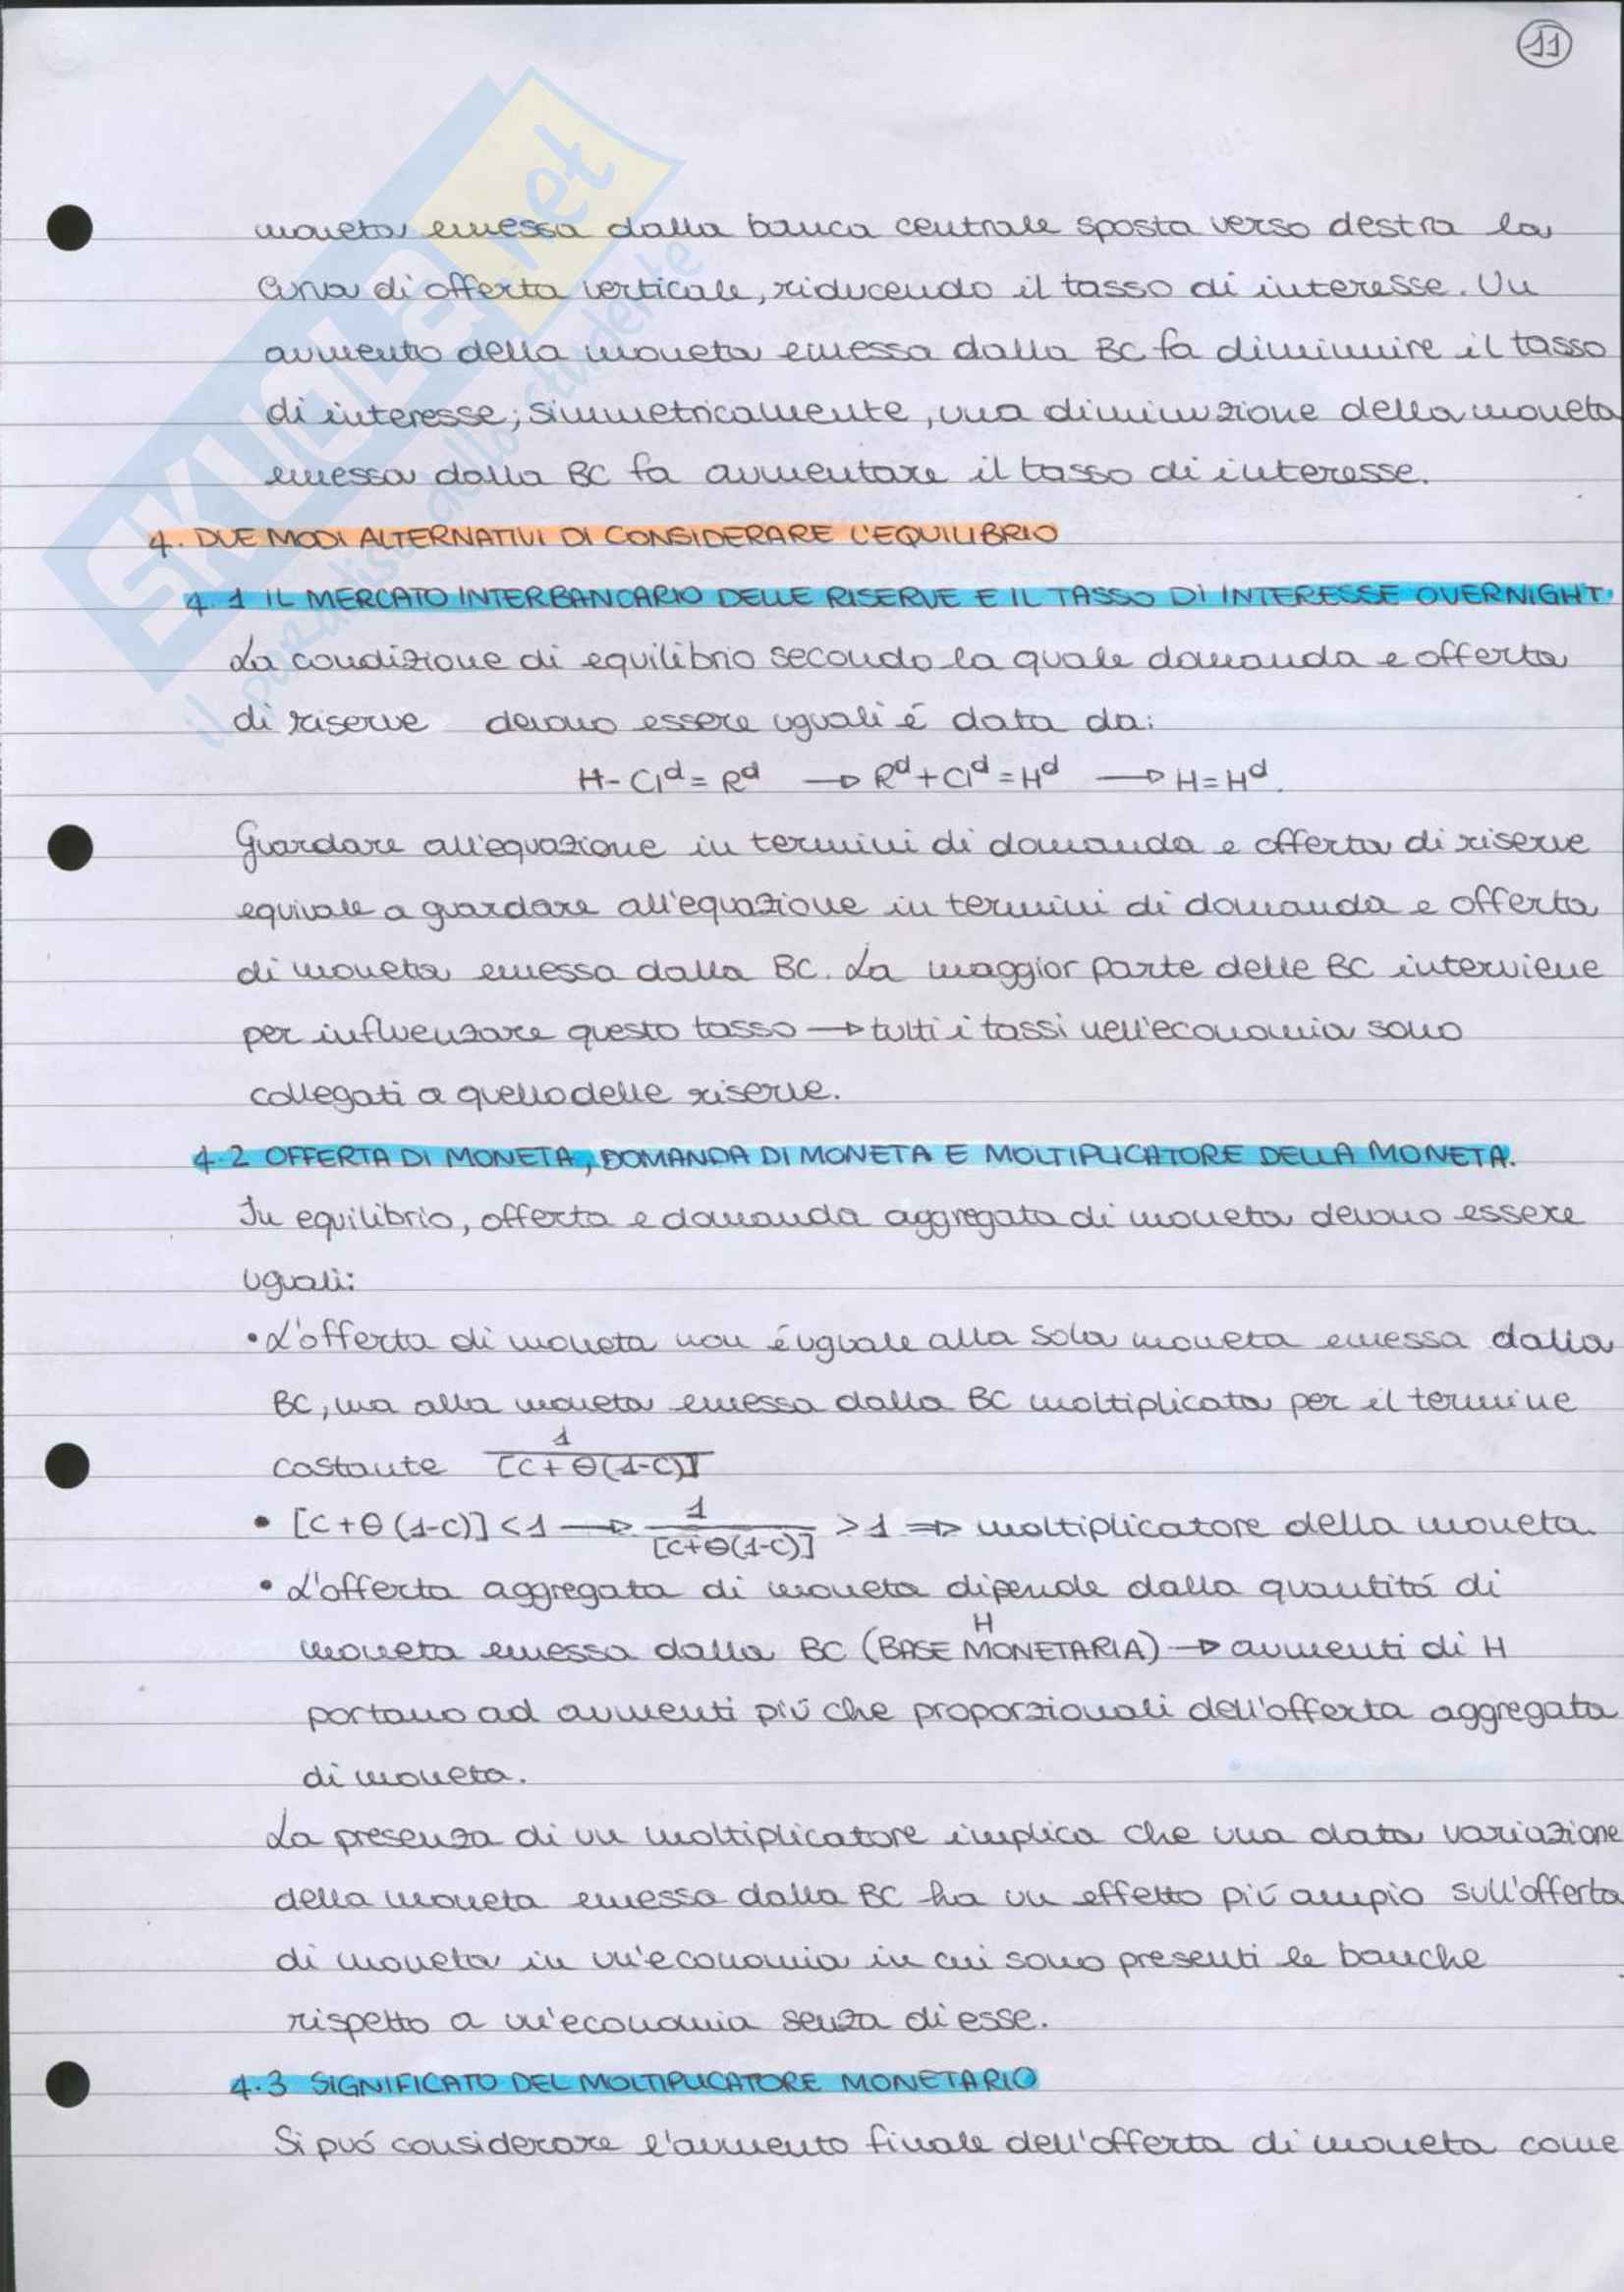 11
SKUOLA.net
il paradiso dello studente
moneta emessa dalla banca centrale sposta verso destra la
curva di offerta verticale, riducendo il tasso di interesse. Un
aumento della moneta emessa dalla BC fa diminuire il tasso
di interesse; simmetricamente, una diminuzione della moneta
emessa dalla BC fa aumentare il tasso di interesse.
4. DUE MODI ALTERNATIVI DI CONSIDERARE L'EQUILIBRIO
4.1 IL MERCATO INTERBANCARIO DELLE RISERVE E IL TASSO DI INTERESSE OVERNIGHT.
La condizione di equilibrio secondo la quale domanda e offerta
di riserve devono essere uguali é data da:
H-CI^d = R^d → R^d + CI^d = H^d → H = H^d.
Guardare all'equazione in termini di domanda e offerta di riserve
equivale a guardare all'equazione in termini di domanda e offerta
di moneta emessa dalla BC. La maggior parte delle BC interviene
per influenzare questo tasso → tutti i tassi nell'economia sono
collegati a quello delle riserve.
4.2 OFFERTA DI MONETA, DOMANDA DI MONETA E MOLTIPLICATORE DELLA MONETA.
In equilibrio, offerta e domanda aggregata di moneta devono essere
uguali:
• L'offerta di moneta non é uguale alla sola moneta emessa dalla
BC, ma alla moneta emessa dalla BC moltiplicata per il termine
costante 1/[C+θ(1-C)]
• [C+θ(1-C)] < 1 → 1/[C+θ(1-C)] > 1 ⇒ moltiplicatore della moneta.
• L'offerta aggregata di moneta dipende dalla quantitá di
H
moneta emessa dalla BC (BASE MONETARIA) → aumenti di H
portano ad aumenti piú che proporzionali dell'offerta aggregata
di moneta.
La presenza di un moltiplicatore implica che una data variazione
della moneta emessa dalla BC ha un effetto piú ampio sull'offerta
di moneta in un'economia in cui sono presenti le banche
rispetto a un'economia senza di esse.
4.3 SIGNIFICATO DEL MOLTIPLICATORE MONETARIO
Si puó considerare l'aumento finale dell'offerta di moneta come